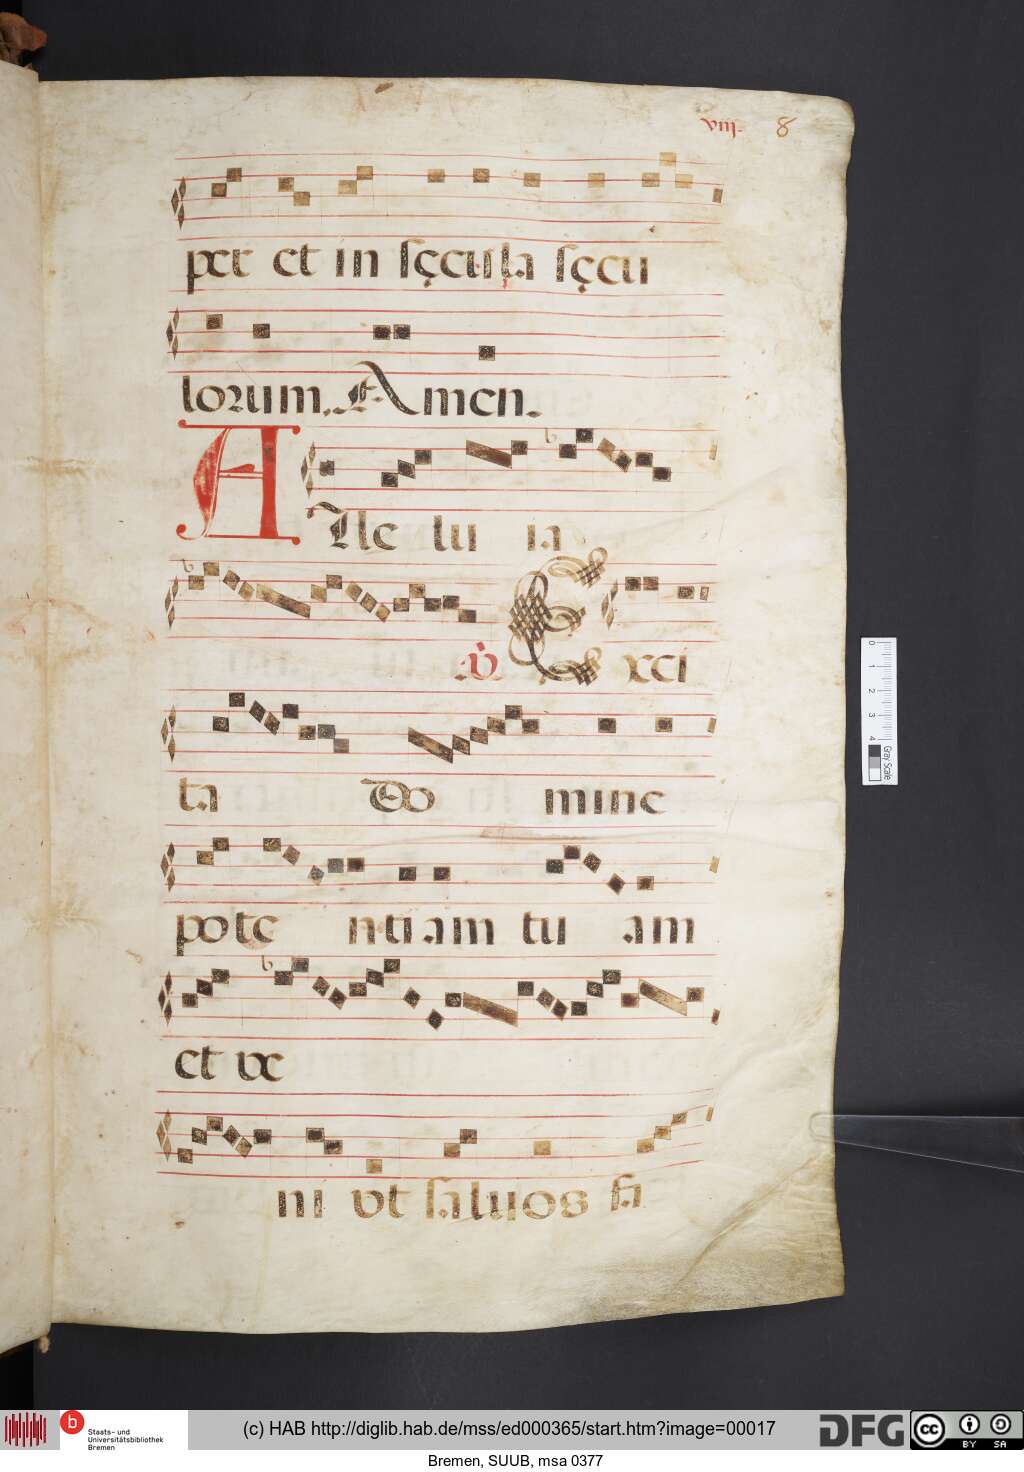 viij. 8
per et in sęcula sęcu
lorum. Amen.
Alle lu ia
℣ Exci
ta Do mine
pote ntiam tu am
et ve
ni vt saluos fa
0 1 2 3 4
Gray Scale
b
Staats- und
Universitätsbibliothek
Bremen
(c) HAB http://diglib.hab.de/mss/ed000365/start.htm?image=00017
DFG
cc BY SA
Bremen, SUUB, msa 0377